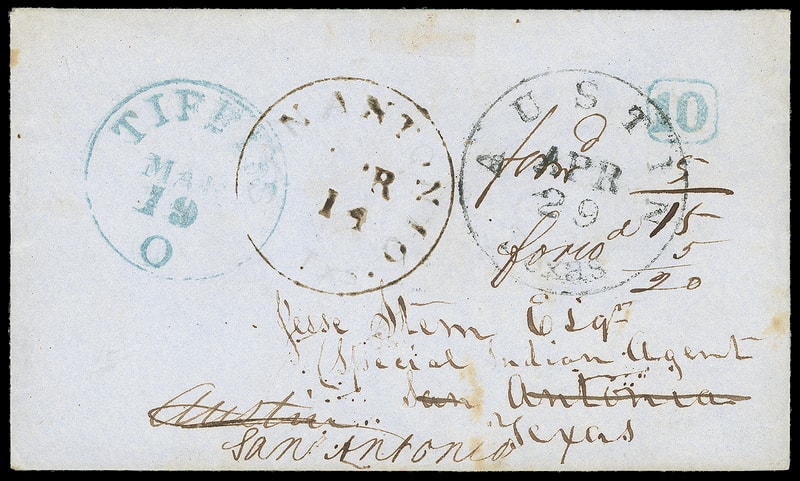 TIFFIN
MAR
19
O
N ANTONIO
R
14
AUSTIN
APR
29
Texas
10
ford 5
forwd 15
5
20
Jesse Stem, Esqr
(Special Indian Agent
San Antonia
Austin
Texas
San Antonio